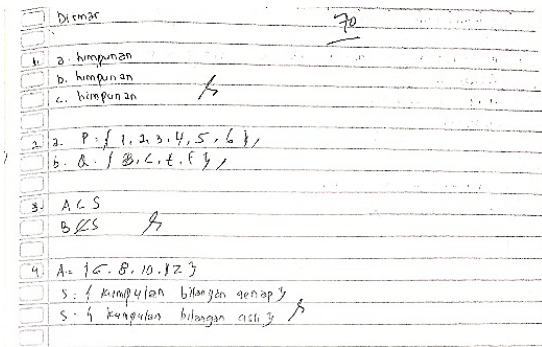 Dismar
70
1. a. himpunan
b. himpunan
c. himpunan
2. a. P = { 1, 2, 3, 4, 5, 6 },
b. Q = { B, C, E, F },
3. A ⊂ S
B ⊄ S
4. A = { 6, 8, 10, 12 }
S = { kumpulan bilangan genap }
S = { kumpulan bilangan asli }